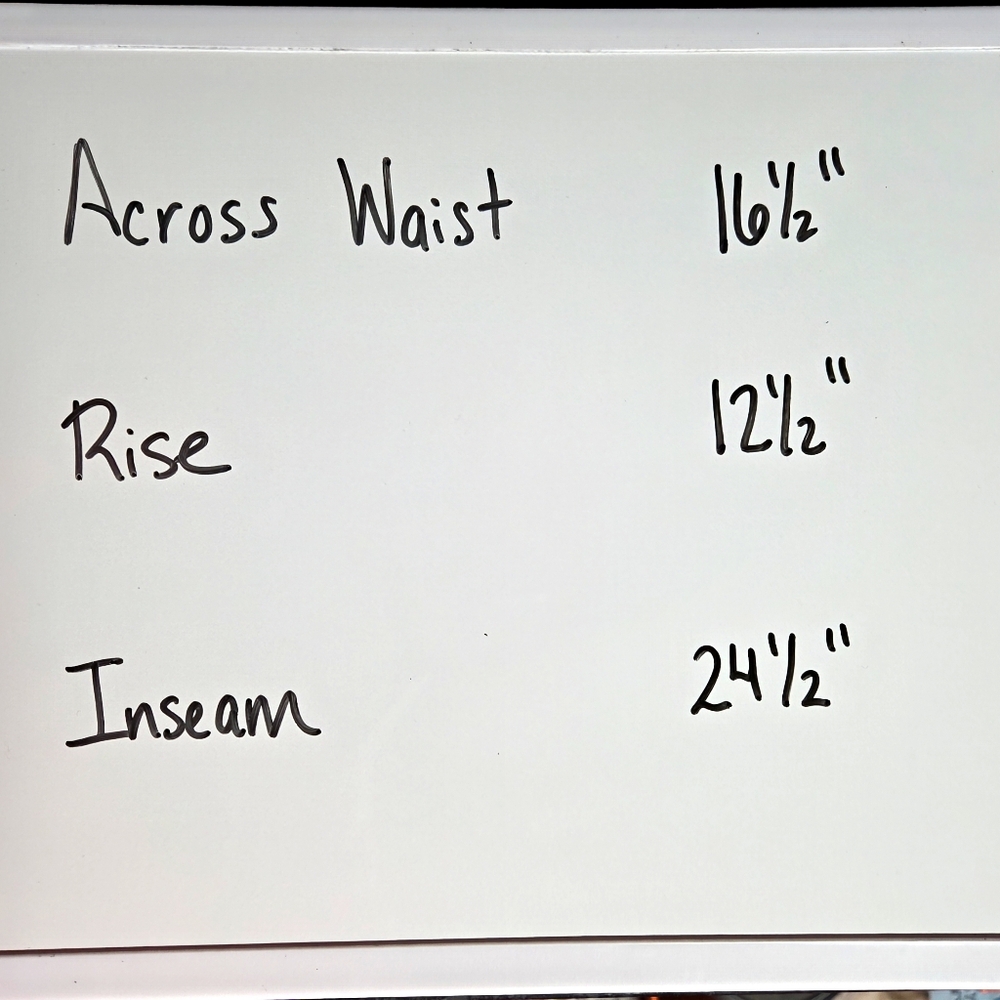 Across Waist 16½"
Rise 12½"
Inseam 24½"